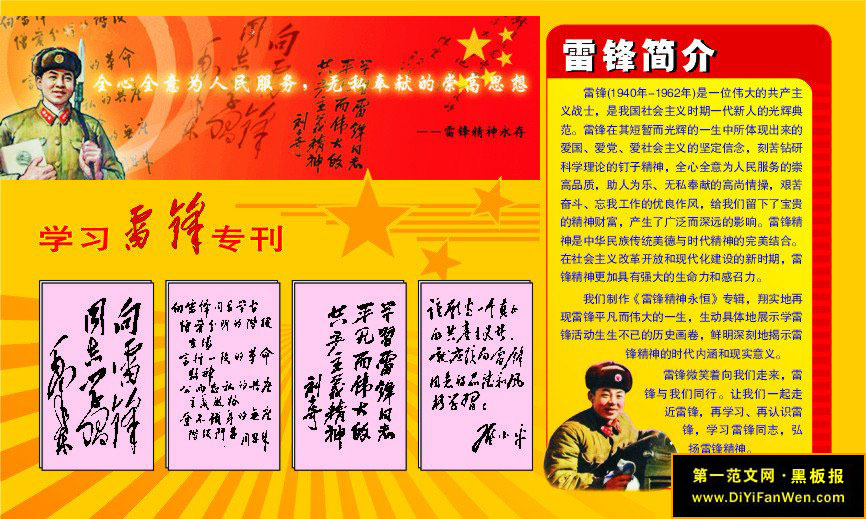 全心全意为人民服务，无私奉献的崇高思想
——雷锋精神永存
学习雷锋专刊
向雷锋
同志学习
毛泽东
向雷锋同志学习
憎爱分明的阶级
立场
言行一致的革命
精神
公而忘私的共产
主义风格
奋不顾身的无产
阶级斗志
周恩来
学习雷锋同志
平凡而伟大的
共产主义精神
刘少奇
谁愿当一个真正
的共产主义者，
就应该向雷锋
同志的品德和风
格学习
邓小平
雷锋简介
雷锋(1940年-1962年)是一位伟大的共产主
义战士，是我国社会主义时期一代新人的光辉典
范。雷锋在其短暂而光辉的一生中所体现出来的
爱国、爱党、爱社会主义的坚定信念，刻苦钻研
科学理论的钉子精神，全心全意为人民服务的崇
高品质，助人为乐、无私奉献的高尚情操，艰苦
奋斗、忘我工作的优良作风，给我们留下了宝贵
的精神财富，产生了广泛而深远的影响。雷锋精
神是中华民族传统美德与时代精神的完美结合。
在社会主义改革开放和现代化建设的新时期，雷
锋精神更加具有强大的生命力和感召力。
我们制作《雷锋精神永恒》专辑，翔实地再
现雷锋平凡而伟大的一生，生动具体地展示学雷
锋活动生生不已的历史画卷，鲜明深刻地揭示雷
锋精神的时代内涵和现实意义。
雷锋微笑着向我们走来，雷
锋与我们同行。让我们一起走
近雷锋，再学习、再认识雷
锋，学习雷锋同志，弘
扬雷锋精神。
第一范文网·黑板报
www.DiYiFanWen.com